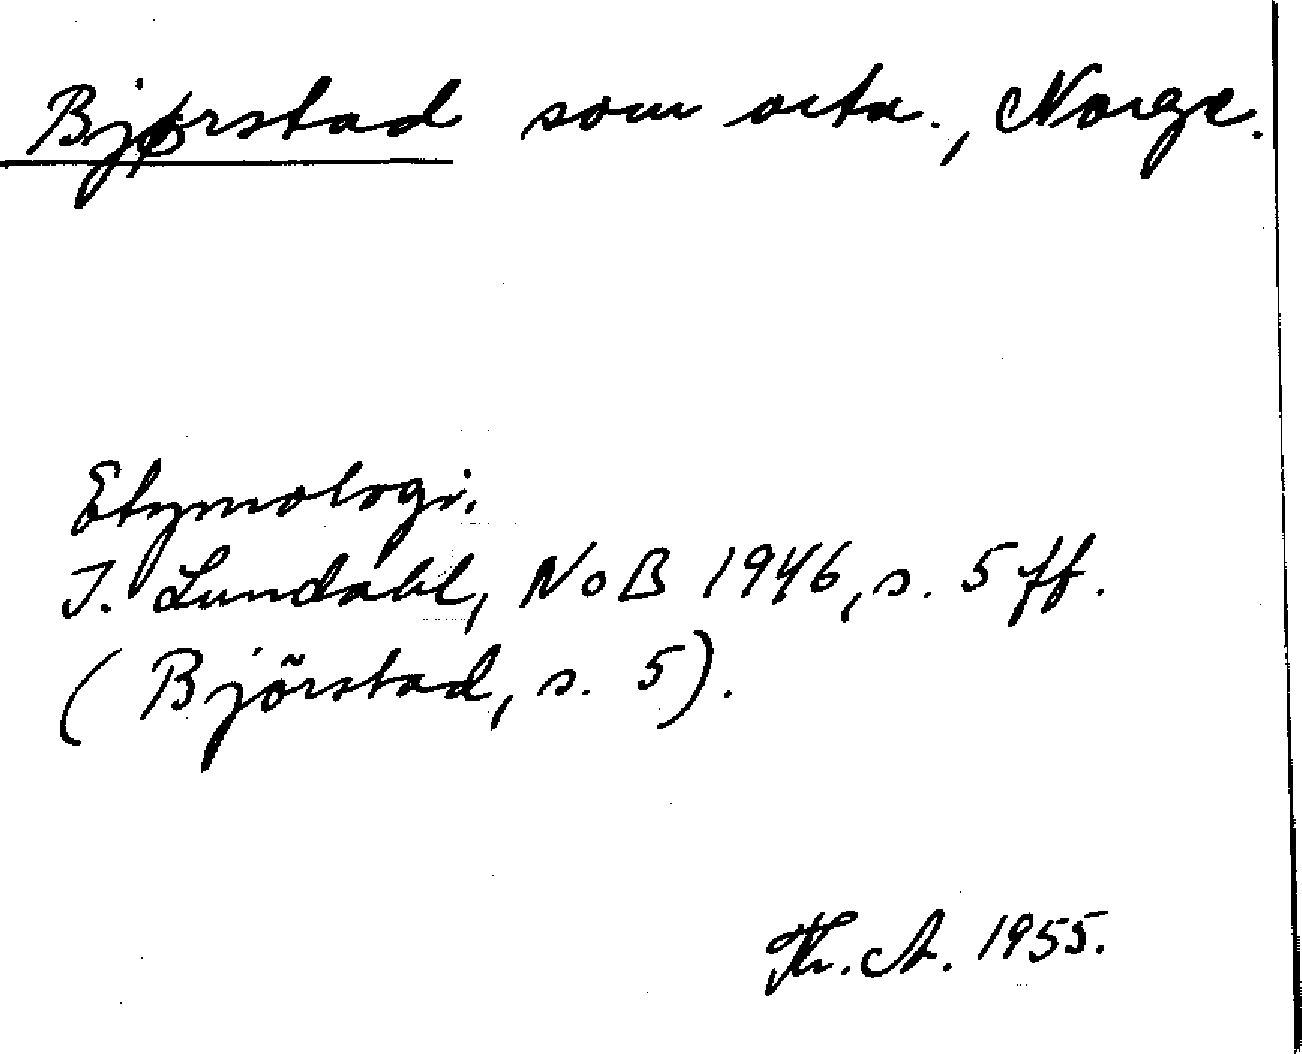 Bjørstad som ortn., Norge.
Etymologi.
I. Lundahl, NoB 1946, s. 5 ff.
(Björstad, s. 5).
Th. A. 1955.